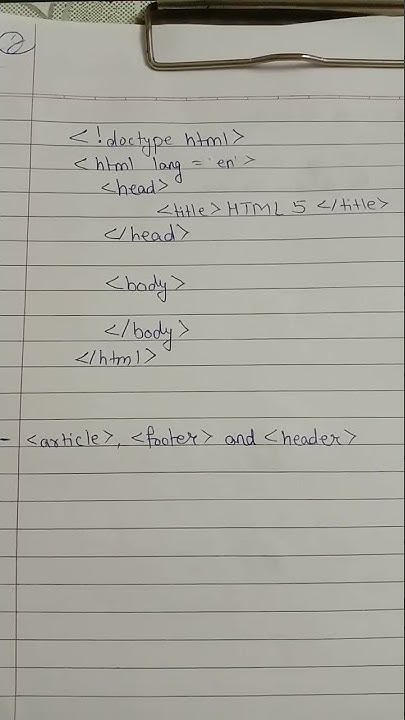 2
<!doctype html>
<html lang = 'en'>
<head>
<title> HTML 5 </title>
</head>
<body>
</body>
</html>
- <article>, <footer> and <header>